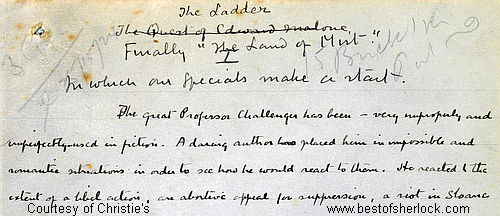 The Ladder
The Quest of Edward Malone
Finally "The Land of Mist"
I
In which our Specials make a start.
The great Professor Challenger has been – very improperly and
imperfectly – used in fiction. A daring author has placed him in impossible and
romantic situations in order to see how he would react to them. He reacted to the
extent of a libel action, an abortive appeal for suppression, a riot in Sloane
Courtesy of Christie's
www.bestofsherlock.com